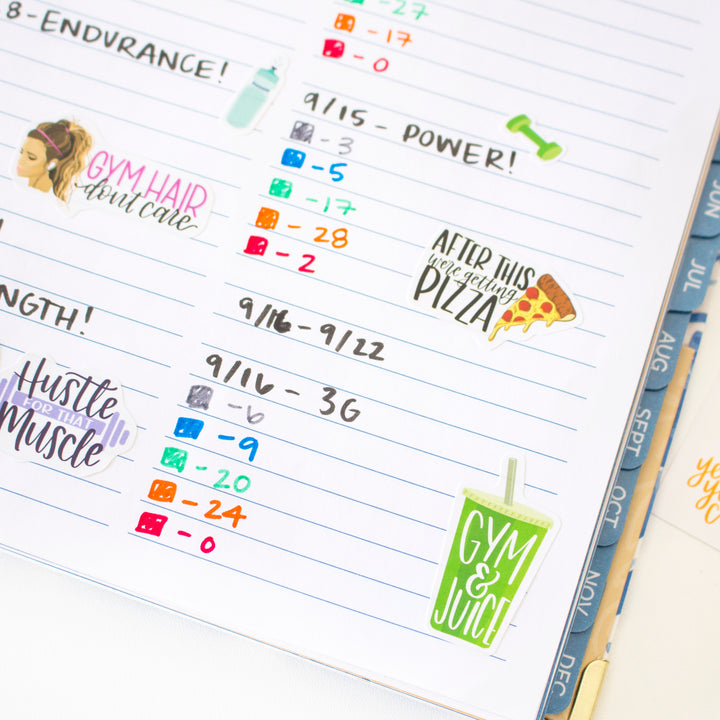 8-ENDURANCE!
GYM HAIR
dont care
NGTH!
Hustle
FOR THAT
Muscle
-27
-17
-0
9/15 - POWER!
-3
-5
-17
-28
-2
AFTER THIS
we're getting
PIZZA
9/16-9/22
9/16 - 3G
-6
-9
-20
-24
-0
GYM
&
JUICE
JUN
JUL
AUG
SEPT
OCT
NOV
DEC